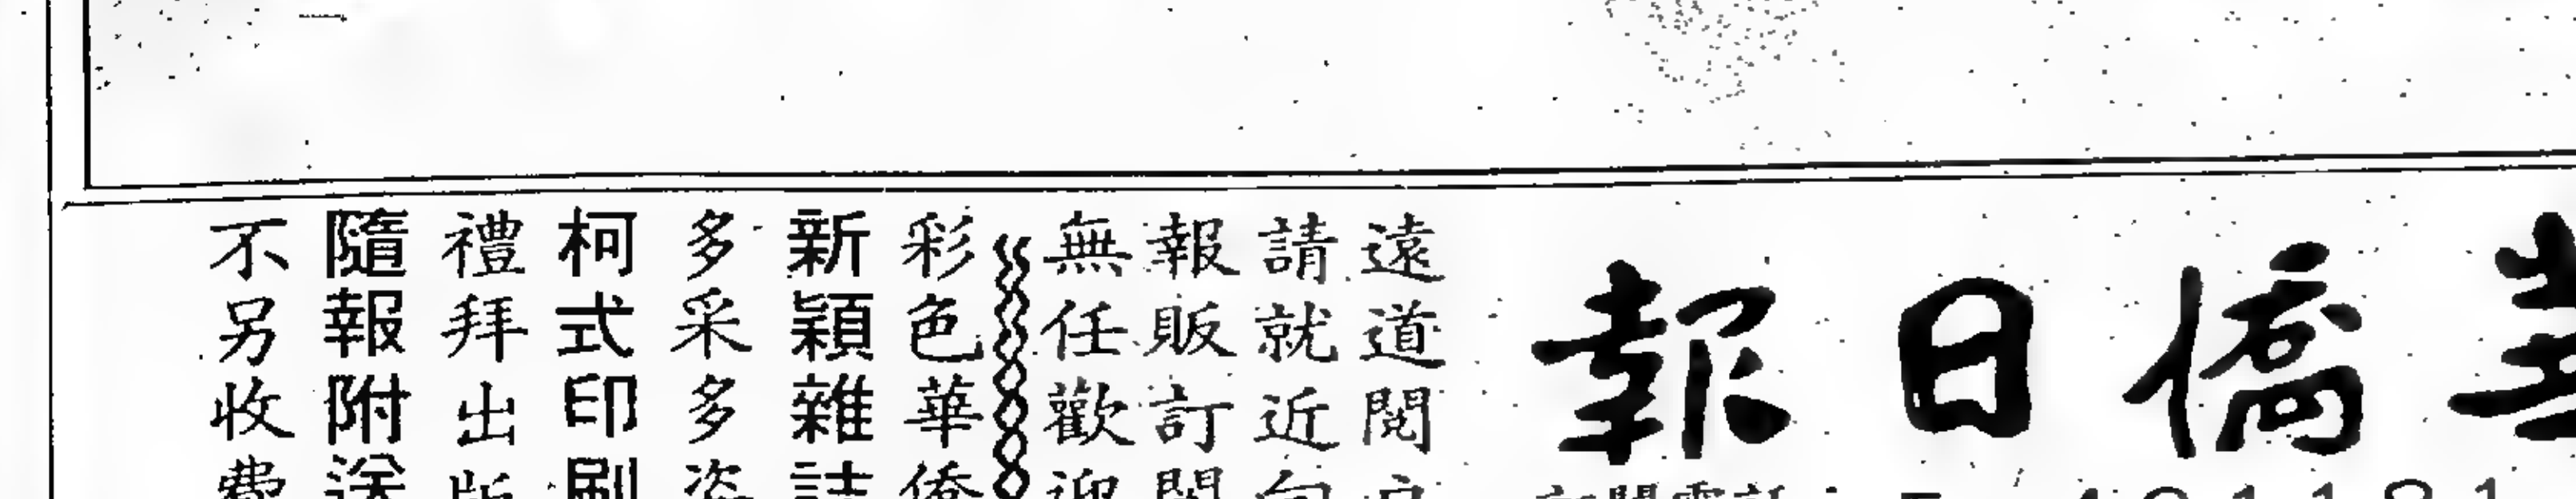 華僑日報
遠道閱
請就近向
報販訂閱
無任歡迎
彩色華僑
新穎雜誌
多采多姿
柯式印刷
禮拜出版
隨報附送
不另收費